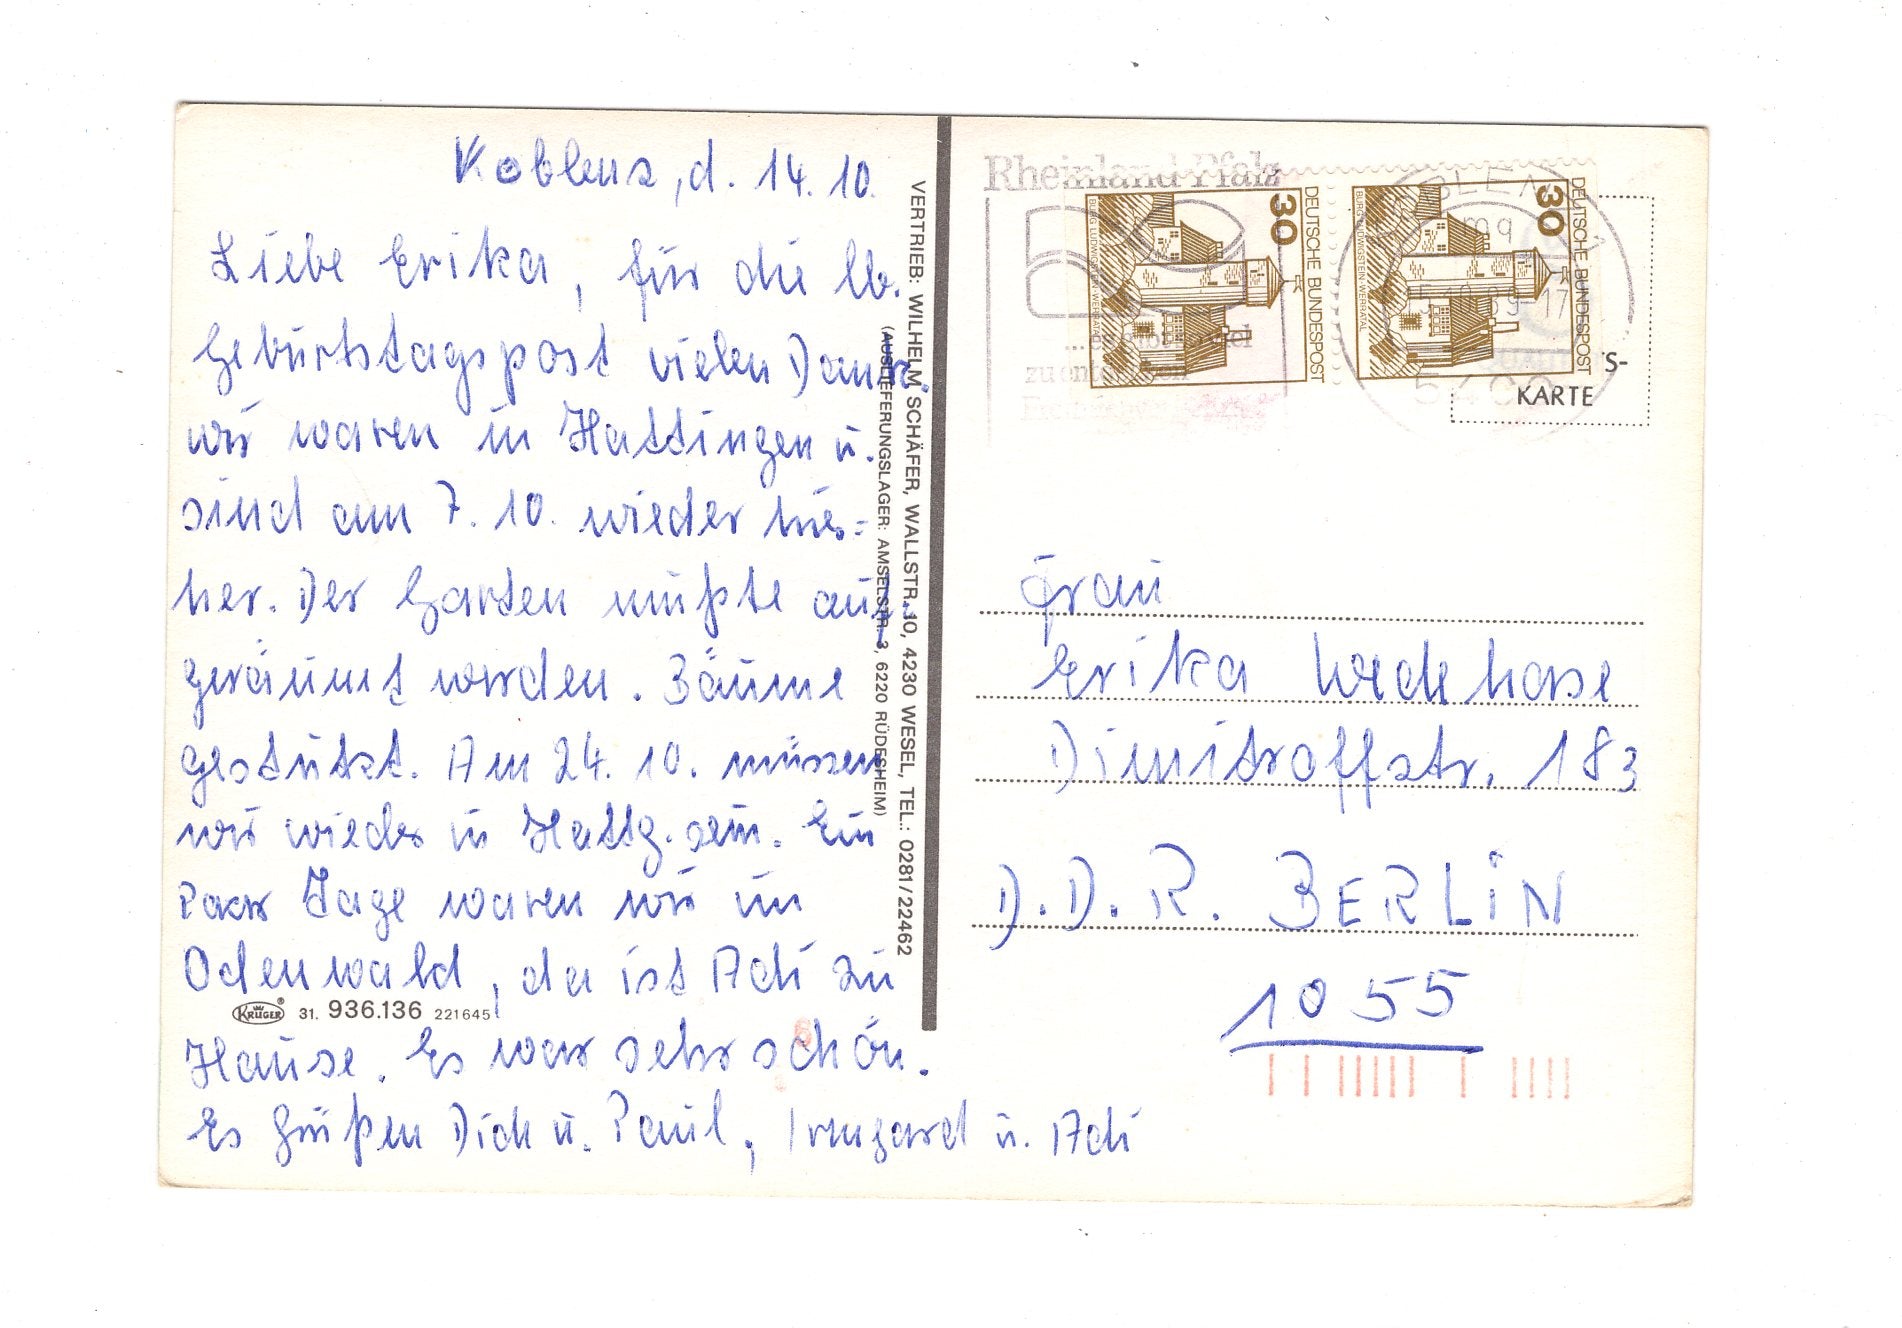 Koblenz, d. 14. 10.
Liebe Erika, für die lb.
Geburtstagspost vielen Dank.
wir waren in Hattingen u.
sind am 7. 10. wieder hier=
her. Der Garten mußte auf
geräumt werden. Bäume
gestutzt. Am 24. 10. müssen
wir wieder in Hattg. sein. Ein
Paar Tage waren wir im
Odenwald, da ist Adi zu
Hause. Es war sehr schön.
Es Grüßen Dich u. Paul, Irmgard u. Adi
KRÜGER® 31. 936.136 221645
VERTRIEB: WILHELM SCHÄFER, WALLSTR. 10, 4230 WESEL, TEL.: 0281/22462
(AUSLIEFERUNGSLAGER: AMSELSTR. 3, 6220 RÜDESHEIM)
Rheinland-Pfalz
zu entdecken
30
DEUTSCHE BUNDESPOST
BURG LUDWIGSTEIN·WERRATAL
30
DEUTSCHE BUNDESPOST
BURG LUDWIGSTEIN·WERRATAL
5400
S-
KARTE
Frau
Erika Wedehase
Dimitroffstr. 183
D.D.R. BERLIN
1055